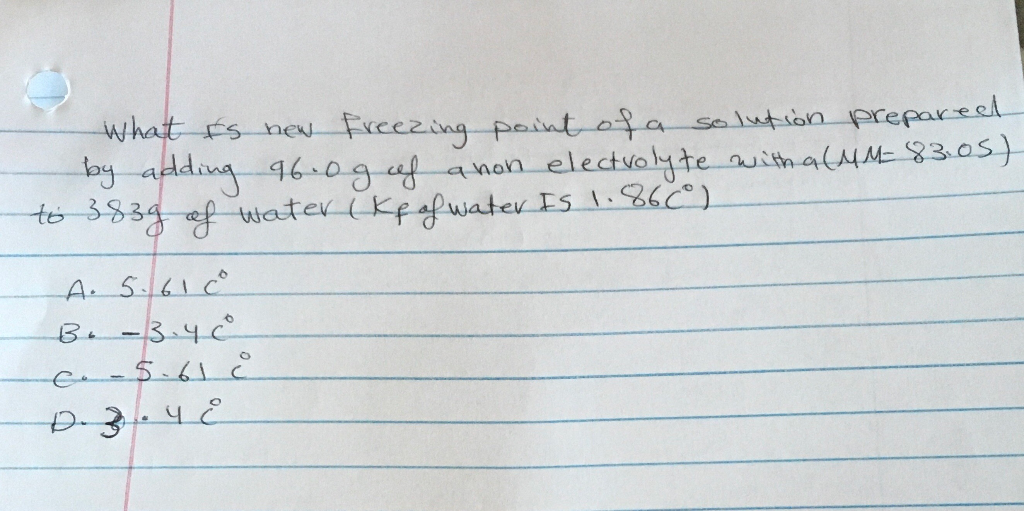 What Is new Freezing point of a solution prepared
by adding 96.0g of a non electrolyte with a (MM= 83.05)
to 383g of water (Kf of water Is 1.86C°)
A. 5.61 C°
B. -3.4 C°
C. -5.61 C°
D. 3.4 C°